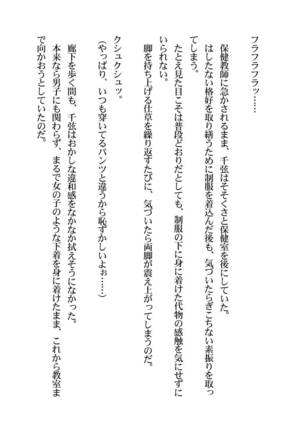 フラフラフラッ……
　保健教師に急かされるまま、千弦はそそくさと保健室を後にしていた。
　はしたない格好を取り繕うために制服を着込んだ後も、気づいたらぎこちない素振りを取っ
てしまう。
　たとえ見た目こそは普段どおりだとしても、制服の下に身に着けた代物の感触を気にせずに
いられない。
　脚を持ち上げる仕草を繰り返すたびに、気づいたら両脚が震え上がってしまうのだ。
クシュクシュッ。
（やっぱり、いつも穿いてるパンツと違うから恥ずかしいよぉ……）
　廊下を歩く間も、千弦はおかしな違和感をなかなか拭えそうになかった。
　本来なら男子にも関わらず、まるで女の子のような下着を身に着けたまま、これから教室ま
で向かおうとしていたのだ。